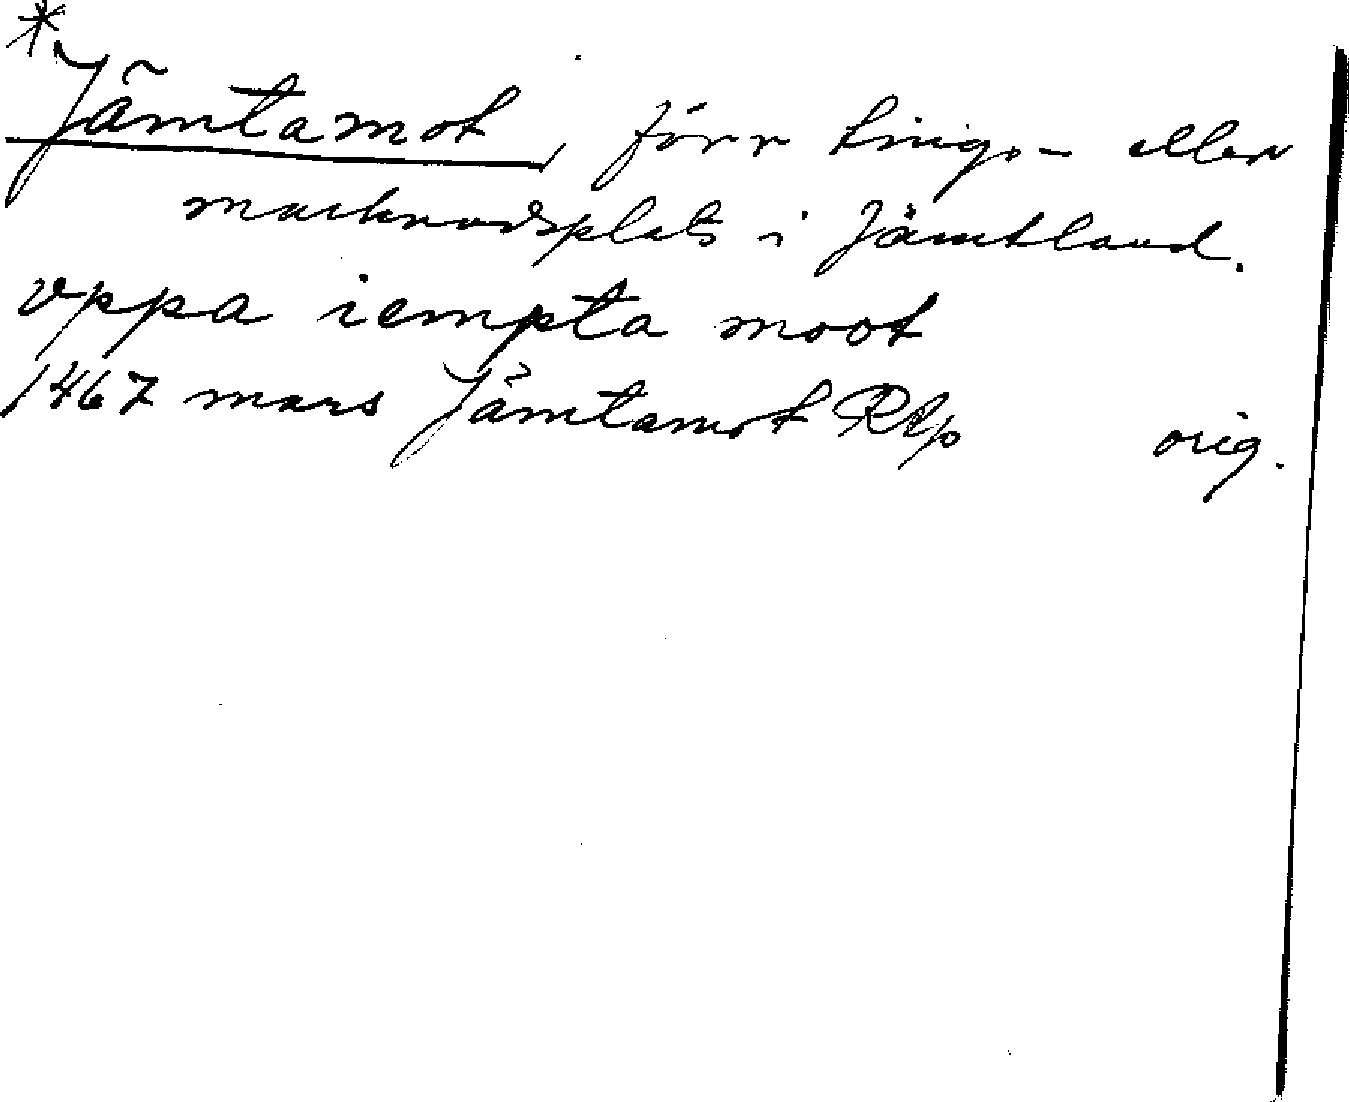 *Jämtamot, förr tings- eller
marknadsplats i Jämtland.
vppa iempta moot
1467 mars Jämtamot RAp orig.